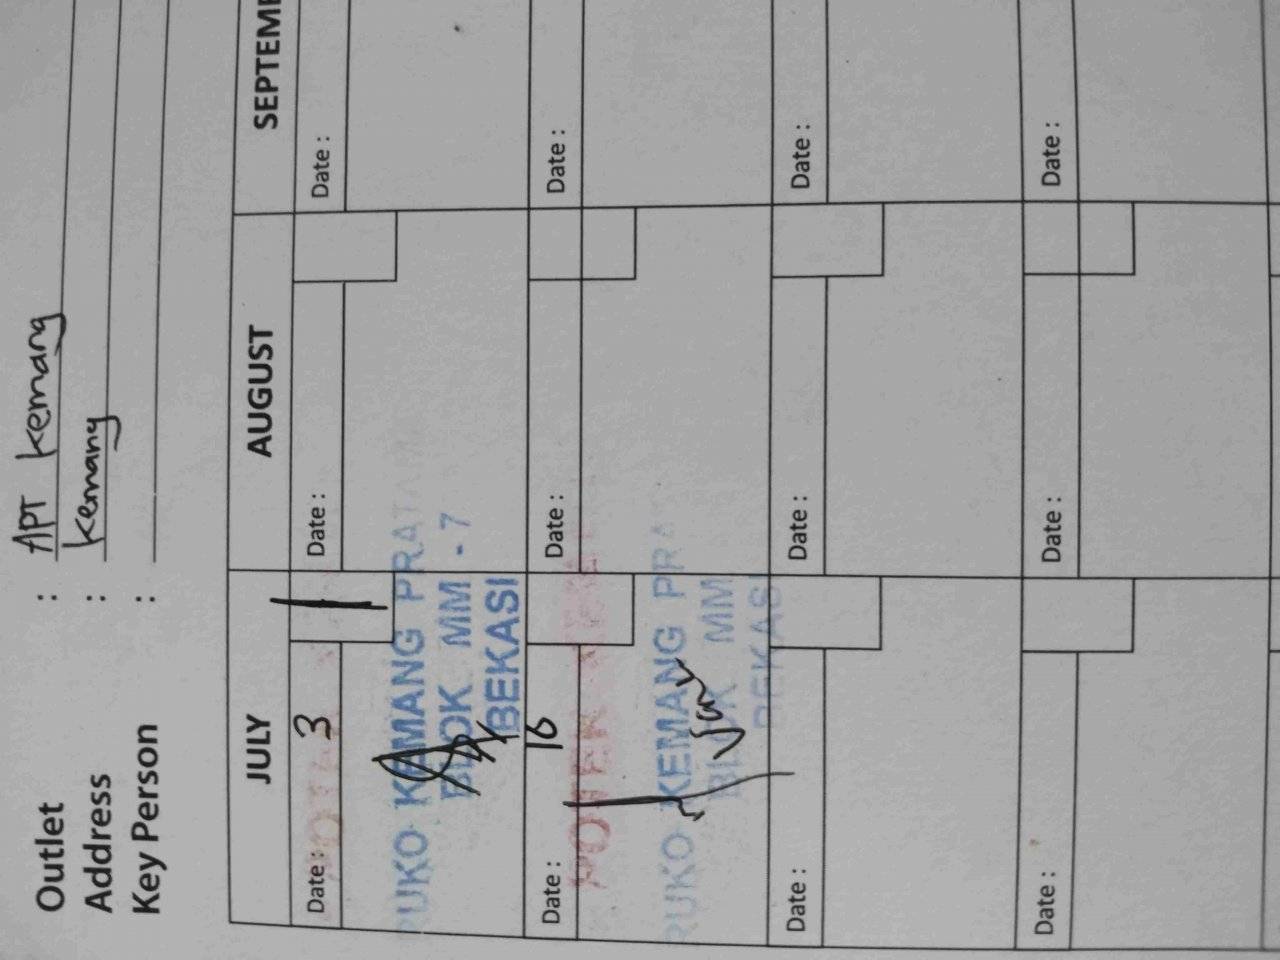 Outlet : APT Kemang
Address : Kemang
Key Person :
JULY AUGUST SEPTEM
Date : 3 Date : Date :
RUKO KEMANG PRATAM
BLOK MM - 7
BEKASI
Date : 16 Date : Date :
RUKO KEMANG PRA
BLOK MM
BEKASI
Date : Date : Date :
Date : Date : Date :